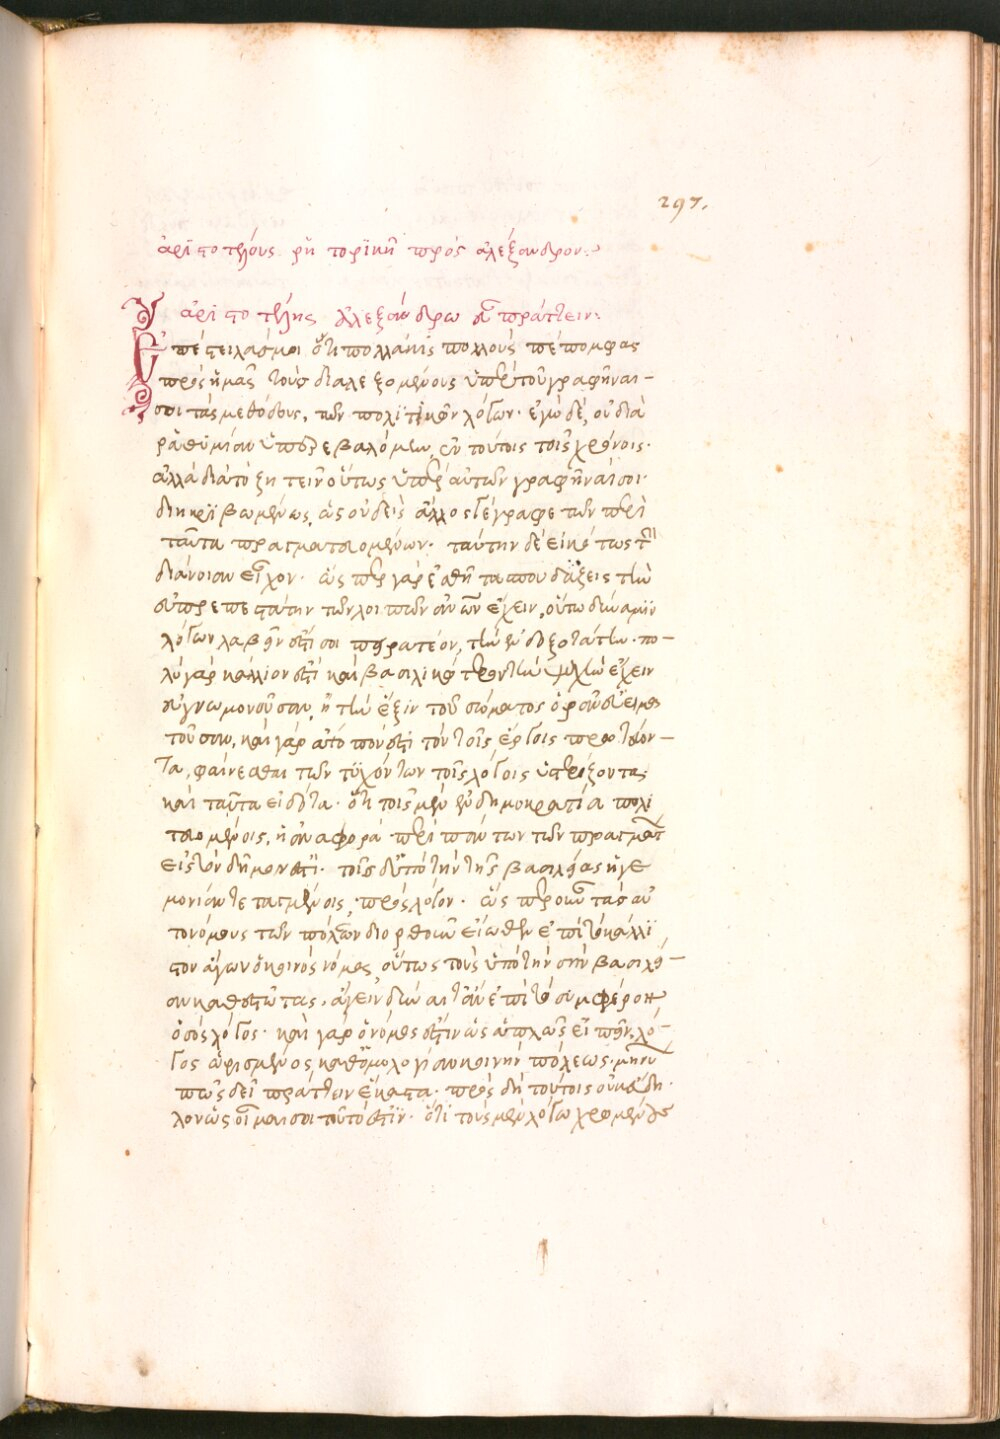 297.
ἀριστοτέλους ῥητορικὴ πρὸς ἀλέξανδρον:
ἀριστοτέλης ἀλεξάνδρω εὖ πράττειν:
Ἐπέστειλάς μοι ὅτι πολλάκις πολλοὺς πέπομφας
πρὸς ἡμᾶς τοὺς διαλεξομένους ὑπὲρ τοῦ γραφῆναι
σοι τὰς μεθόδους, τῶν πολιτικῶν λόγων· ἐγὼ δὲ, οὐ διὰ
ῥαθυμίαν ὑπερεβαλόμην ἐν τούτοις τοῖς χρόνοις·
ἀλλὰ διὰ τὸ ζητεῖν οὕτως ὑπὲρ αὐτῶν γραφῆναί σοι
διηκριβωμένως, ὡς οὐδεὶς ἄλλος γέγραφε τῶν περὶ
ταῦτα πραγματευομένων· ταύτην δὲ εἰκότως τὴν
διάνοιαν εἶχον· ὥσπερ γὰρ ἐσθῆτα σπουδάζεις τὴν
εὐπρεπεστάτην τῶν λοιπῶν ἀνων ἔχειν, οὕτω δύναμιν
λόγων λαβεῖν ἐστί σοι πειρατέον, τὴν ἐνδοξοτάτην· πο-
λὺ γὰρ κάλλιόν ἐστι καὶ βασιλικώτερον τὴν ψυχὴν ἔχειν
εὐγνωμονοῦσαν, ἢ τὴν ἕξιν τοῦ σώματος ὁρᾶν εὐειμα
τοῦσαν, καὶ γὰρ ἄτοπόν ἐστι τὸν τοῖς ἔργοις πρωτεύον-
τα, φαίνεσθαι τῶν τυχόντων τοῖς λόγοις ὑστερίζοντα,
καὶ ταῦτα εἰδότα· ὅτι τοῖς μὲν ἐν δημοκρατία πολι
τευομένοις, ἡ ἀναφορὰ περὶ πάντων τῶν πραγμάτ
εἰς τὸν δῆμον ἐστί· τοῖς δ' ὑπὸ τὴν τῆς βασιλείας ἡγε
μονίαν τεταγμένοις, πρὸς λόγον· ὥσπερ οὖν τὰς αὐ
τονόμους τῶν πόλεων διορθοῦν εἴωθεν ἐπὶ τὸ κάλλι
στον ἄγων ὁ κοινὸς νόμος, οὕτως τοὺς ὑπὸ τὴν σὴν βασιλεί-
αν καθεστῶτας, ἄγειν δύναιτ' ἂν ἐπὶ τὸ συμφέρον
ὁ σὸς λόγος· καὶ γὰρ ὁ νόμος ἐστὶν ὡς ἁπλῶς εἰπεῖν, λό-
γος ὡρισμένος, καθ' ὁμολογίαν κοινὴν πόλεως· μηνύων
πῶς δεῖ πράττειν ἕκαστα· πρὸς δὴ τούτοις οὐκ ἄδη
λον ὡς οἶμαι σοι τοῦτό ἐστιν· ὅτι τοὺς μὲν λόγω χρωμένους